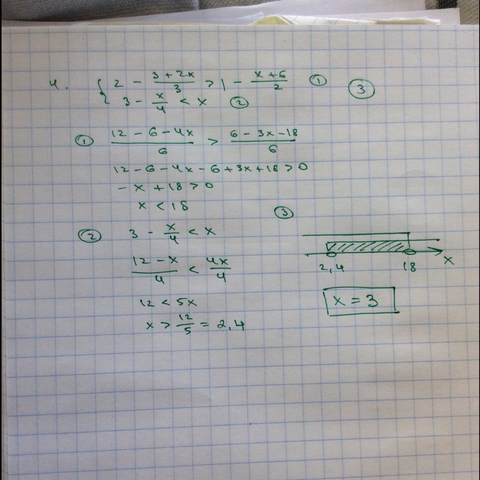 4. { 2 - (3+2x)/3 > 1 - (x+6)/2 ① ③
{ 3 - x/4 < x ②
① (12-6-4x)/6 > (6-3x-18)/6
12-6-4x-6+3x+18>0
-x+18>0
x<18
② 3 - x/4 < x
(12-x)/4 < 4x/4
12<5x
x > 12/5 = 2,4
③
2,4 18 x
x = 3